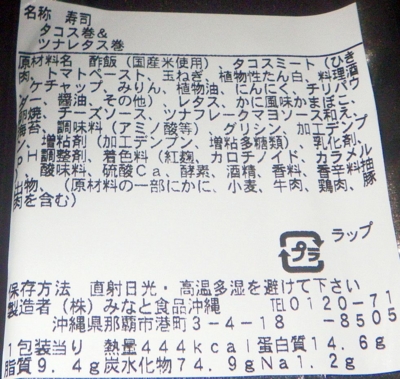 名称 寿司
タコス巻&
ツナレタス巻
原材料名 酢飯(国産米使用) タコスミート(ひき
肉、トマトペースト、玉ねぎ、植物性たん白、料理酒
、ケチャップ、みりん、植物油、にんにく、チリパウ
ダー、醤油、その他)、レタス、かに風味かまぼこ、
卵焼、チーズソース、ツナフレークマヨソース和え、
海苔、調味料(アミノ酸等) グリシン、加工デンプ
ン、増粘剤(加工デンプン、増粘多糖類)、乳化剤、
PH調整剤、着色料(紅麹、カロチノイド、カラメル
)、酸味料、硫酸Ca、酵素、酒精、香料、香辛料抽
出物、(原材料の一部にかに、小麦、牛肉、鶏肉、豚
肉を含む)
プラ
ラップ
保存方法 直射日光・高温多湿を避けて下さい
製造者 (株)みなと食品沖縄 TEL0120-71
沖縄県那覇市港町3-4-18 -8505
1包装当り 熱量444kcal蛋白質14.6g
脂質9.4g炭水化物74.9gNa1.2g